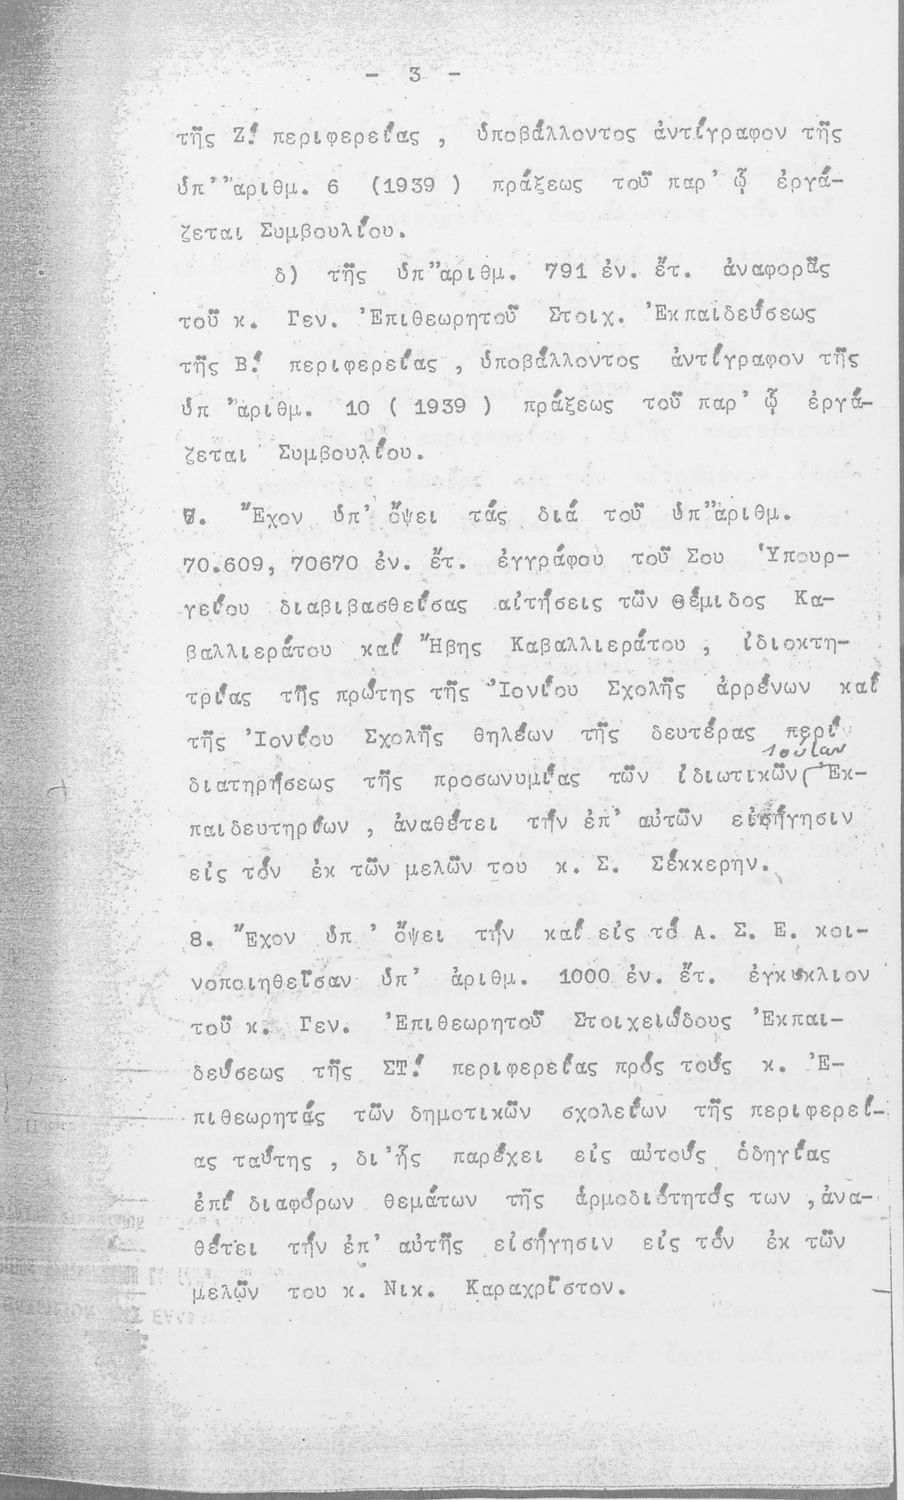 - 3 -
τῆς Ζ! περιφερείας , ὑποβάλλοντος ἀντίγραφον τῆς
ὑπ'"αριθμ. 6 (1939 ) πράξεως τοῦ παρ' ᾧ ἐργά-
ζεται Συμβουλίου.
δ) τῆς ὑπ"αριθμ. 791 ἐν. ἔτ. ἀναφορᾶς
τοῦ κ. Γεν. 'Επιθεωρητοῦ Στοιχ. 'Εκπαιδεύσεως
τῆς Β! περιφερείας , ὑποβάλλοντος ἀντίγραφον τῆς
ὑπ 'αριθμ. 10 ( 1939 ) πράξεως τοῦ παρ' ᾧ ἐργά-
ζεται Συμβουλίου.
7. Ἔχον ὑπ' ὄψει τάς διά τοῦ ὑπ"ἀριθμ.
70.609, 70670 ἐν. ἔτ. ἐγγράφου τοῦ Σου Ὑπουρ-
γείου διαβιβασθείσας αἰτήσεις τῶν Θέμιδος Κα-
βαλλιεράτου καί Ἥβης Καβαλλιεράτου , ἰδιοκτη-
τρίας τῆς πρώτης τῆς 'Ιονίου Σχολῆς ἀρρένων καί
τῆς 'Ιονίου Σχολῆς θηλέων τῆς δευτέρας περί
διατηρήσεως τῆς προσωνυμίας τῶν ἰδιωτικῶν ( 'Εκ-
παιδευτηρίων , ἀναθέτει τήν ἐπ' αὐτῶν εἰσήγησιν
εἰς τόν ἐκ τῶν μελῶν του κ. Σ. Σέκκερην.
8. Ἔχον ὑπ ' ὄψει τήν καί εἰς τό Α. Σ. Ε. κοι-
νοποιηθεῖσαν ὑπ' ἀριθμ. 1000 ἐν. ἔτ. ἐγκύκλιον
τοῦ κ. Γεν. 'Επιθεωρητοῦ Στοιχειώδους 'Εκπαι-
δεύσεως τῆς ΣΤ! περιφερείας πρός τούς κ. 'Ε-
πιθεωρητάς τῶν δημοτικῶν σχολείων τῆς περιφερεί-
ας ταύτης , δι'ἧς παρέχει εἰς αὐτούς ὁδηγίας
ἐπί διαφόρων θεμάτων τῆς ἁρμοδιότητός των ,ἀνα-
θέτει τήν ἐπ' αὐτῆς εἰσήγησιν εἰς τόν ἐκ τῶν
μελῶν του κ. Νικ. Καραχρῖστον.